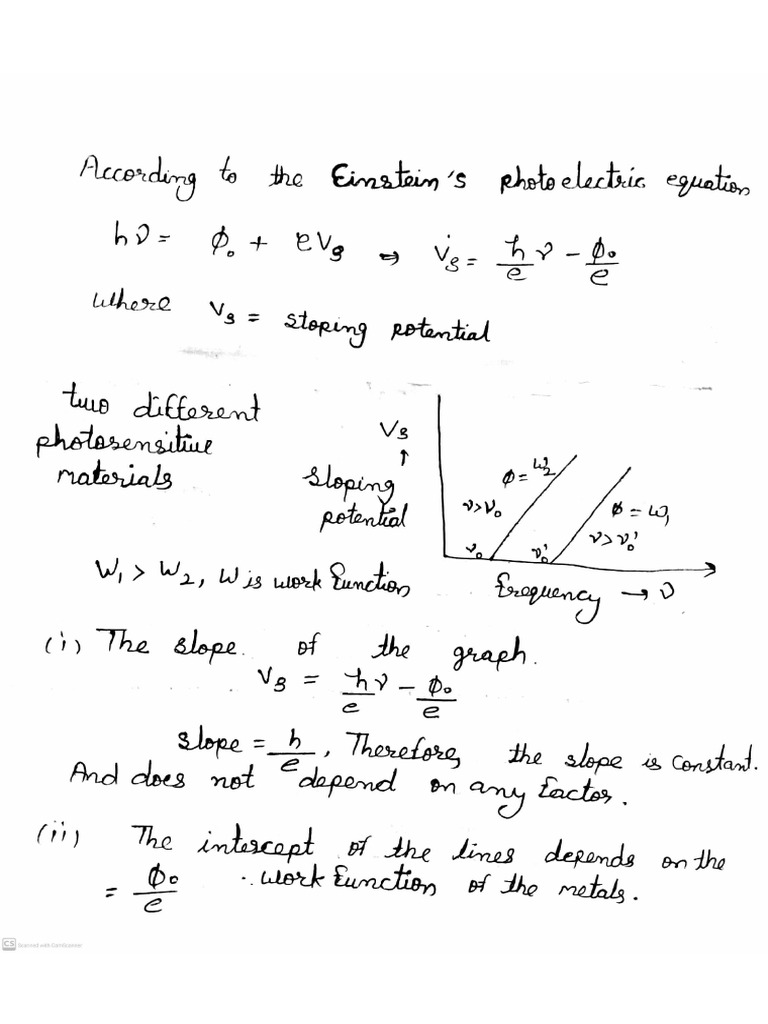 According to the Einstein's photoelectric equation
hν = ϕ₀ + eVs ⇒ Vs = h/e ν - ϕ₀/e
where Vs = stoping potential
two different
photosensitive
materials
Vs
↑
sloping
potential
ϕ = W₂
ν>ν₀
ϕ = W₁
ν>ν₀'
ν₀ ν₀'
frequency → ν
W₁ > W₂, W is work function
(i) The slope of the graph.
Vs = hν/e - ϕ₀/e
slope = h/e, Therefore, the slope is constant.
And does not depend on any factor.
(ii) The intercept of the lines depends on the
= ϕ₀/e . work function of the metals.
CS Scanned with CamScanner